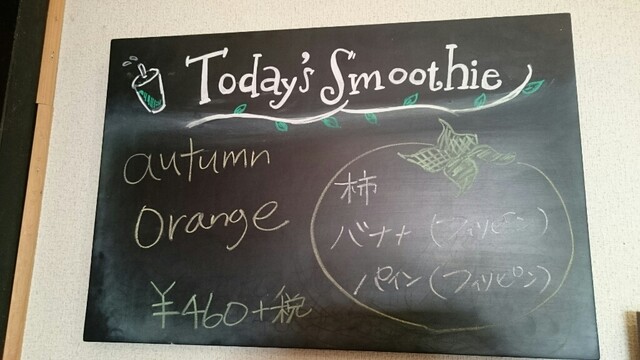 Today's Smoothie
autumn
orange
¥460+税
柿
バナナ(フィリピン)
パイン(フィリピン)